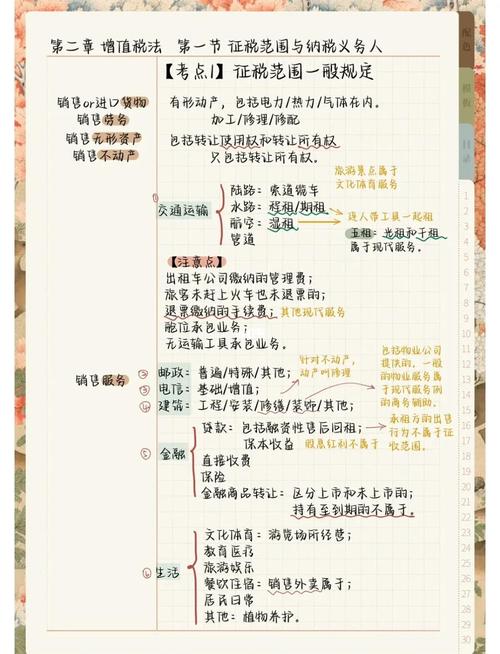 第二章 增值税法 第一节 征税范围与纳税义务人
【考点1】征税范围一般规定
销售or进口货物 有形动产，包括电力/热力/气体在内。
销售劳务 加工/修理/修配
销售无形资产 包括转让使用权和转让所有权
销售不动产 只包括转让所有权。
旅游景点属于
文化体育服务
① 交通运输
陆路：索道缆车
水路：程租/期租
航空：湿租
管道
连人带工具一起租
光租和干租
属于现代服务。
【注意点】
出租车公司缴纳的管理费；
旅客未赶上火车也未退票的；
退票缴纳的手续费；其他现代服务
舱位承包业务；
无运输工具承包业务。
销售服务
邮政：普遍/特殊/其他；
③ 电信：基础/增值；
④ 建筑：工程/安装/修缮/装饰/其他；
针对不动产，
动产叫修理
包括物业公司
提供的，一般
的物业服务属
于现代服务例
的商务辅助。
⑤ 金融
贷款：包括融资性售后回租；
保本收益 股息红利不属于
承租方的出售
行为不属于征
收范围。
直接收费
保险
金融商品转让：区分上市和未上市的；
持有至到期的不属于。
⑥ 生活
文化体育：游览场所经营；
教育医疗
旅游娱乐
餐饮住宿：销售外卖属于；
居民日常
其他：植物养护。
配色
模板
目录
1
2
3
4
5
6
7
8
9
10
11
12
13
14
15
16
17
18
19
20
21
22
23
24
25
26
27
28
29
30